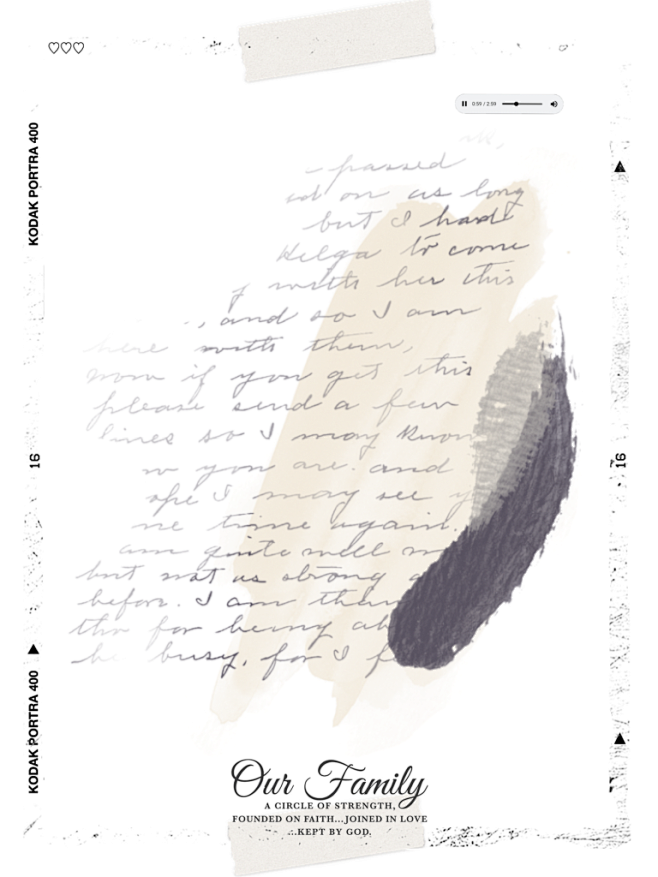 KODAK PORTRA 400
0:59 / 2:59
passed
on as long
but I had
Helga to come
with her this
, and so I am
here with them,
now if you get this
please send a few
lines so I may know
you are. and
I may see y
time again.
am quite well
but not as strong a
befor. I am than
for being ab
be busy, for I f
16
16
KODAK PORTRA 400
Our Family
A CIRCLE OF STRENGTH,
FOUNDED ON FAITH...JOINED IN LOVE
...KEPT BY GOD.